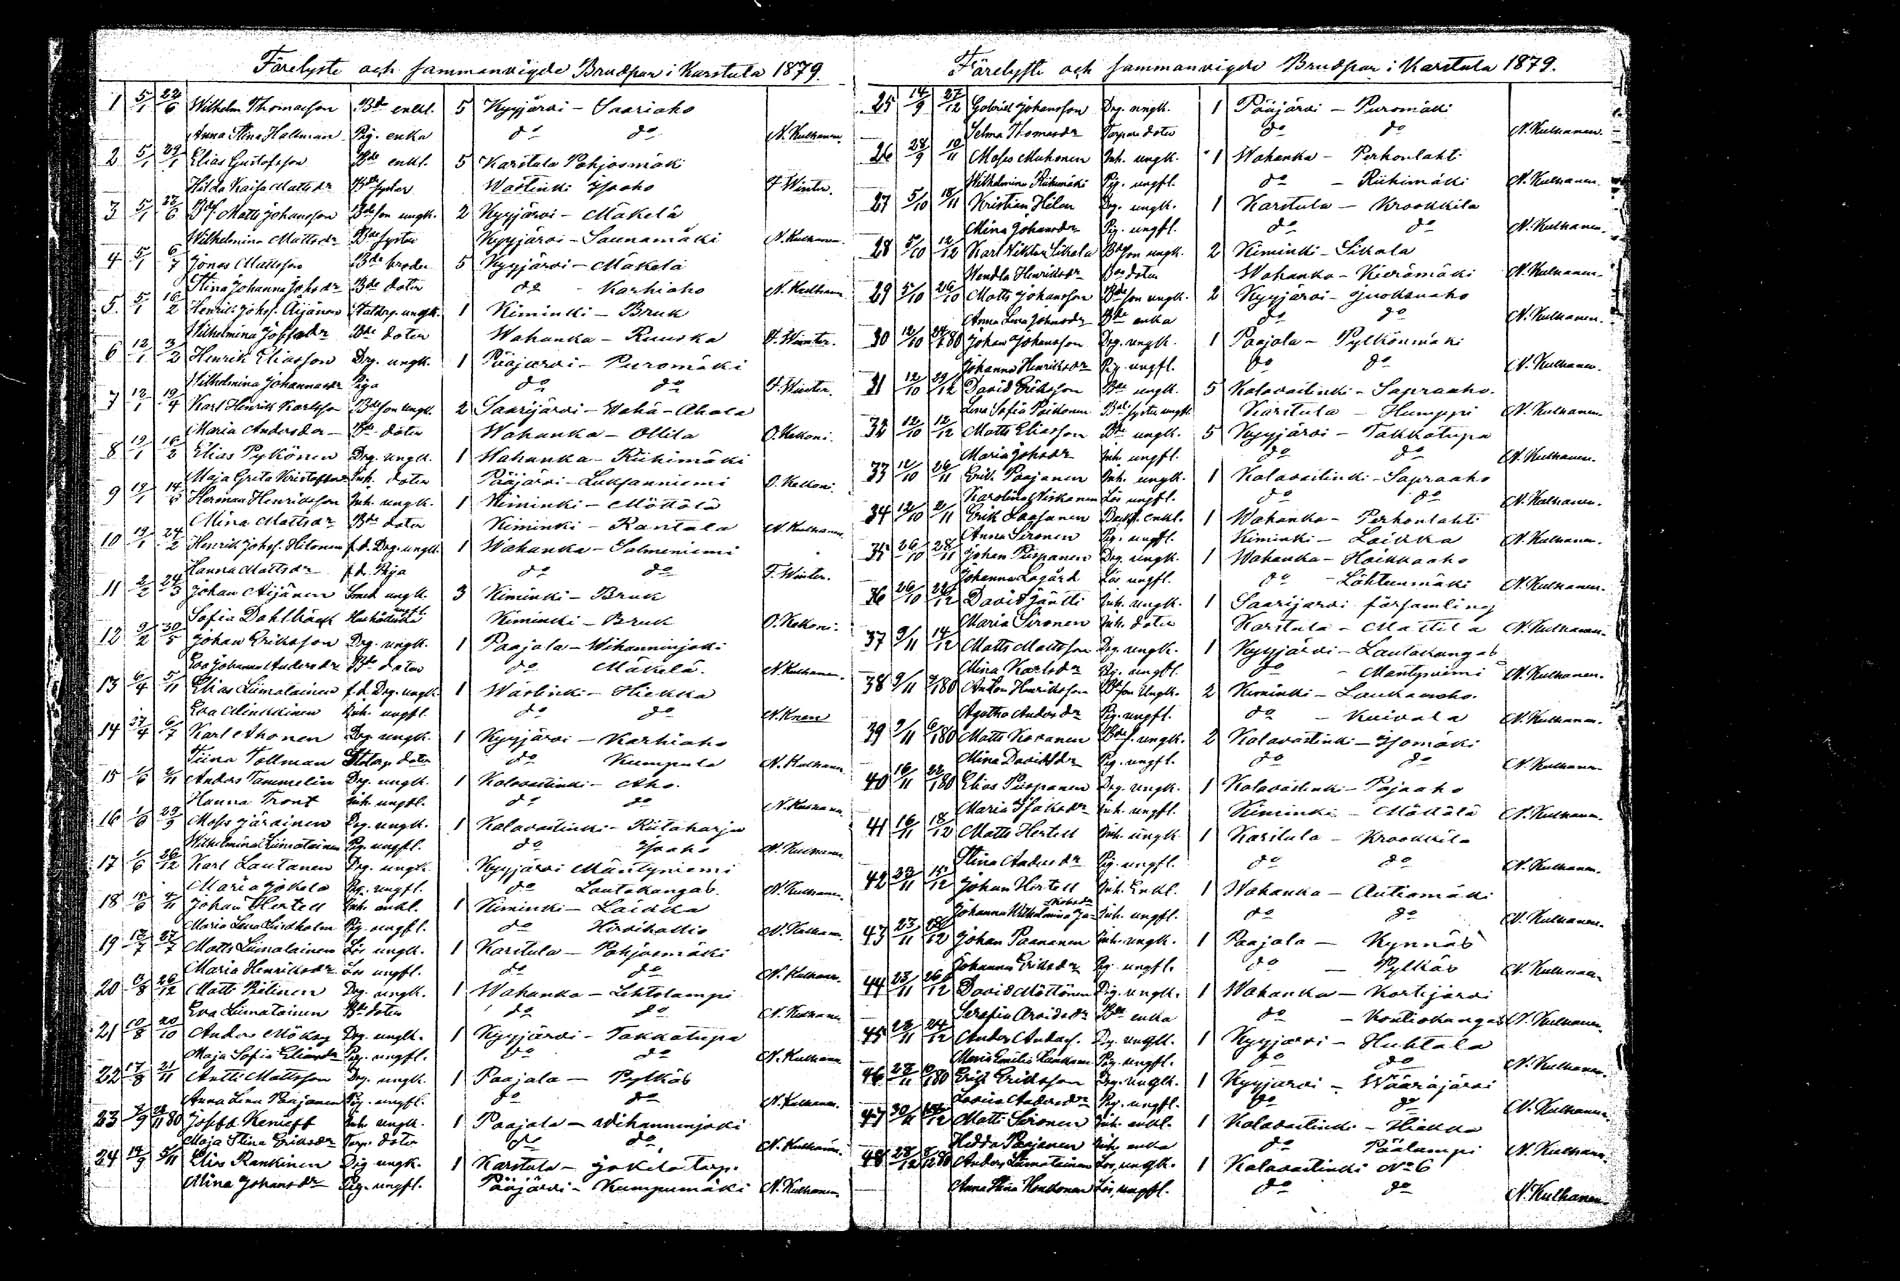 Förelyste och sammanvigde Brudpar i Karstula 1879.
1 5/1 22/6 Wilhelm Thomasson Bde enkl. 5 Kyyjärvi – Saariaho
Anna Stina Hallman Pig. enka do do N. Kulhanen.
2 5/1 29/1 Elias Gustafsson Bde enkl. 5 Karstula Pohjosmäki
Hilda Kaisa Mattsdr Bde syster Wastinki Isoaho F. Winter.
3 5/1 22/6 Matts Johansson Bde son ungk. 2 Kyyjärvi – Mäkelä
Wilhelmina Mattsdr Bde syster Kyyjärvi – Saunamäki N. Kulhanen.
4 5/1 6/7 Jonas Mattsson Bde broder 5 Kyyjärvi – Mäkelä
Stina Johanna Johsdr Bde doter do – Karhiaho N. Kulhanen
5. 5/1 16/2 Henrik Johsf. Äijänen Statdrg. ungk. 1 Kiminki – Bruk
Wilhelmina Josefsdr Bde doter Wahanka – Ruuska F. Winter.
6 12/1 3/2 Henrik Eliasson Drg. ungk. 1 Pääjärvi – Puromäki
Wilhelmina Johannsdr Piga do do F. Winter.
7 12/1 19/4 Karl Henrik Karlsson Bde son ungk. 2 Saarijärvi – Wähä-Ahola
Maria Andersdr – Bde doter Wahanka – Ollila O. Kekoni.
8 19/1 16/2 Elias Pykönen Drg. ungk. 1 Wahanka – Riihimäki
Maja Greta Kristoffersdr Inh. doter Pääjärvi – Luksanniemi O. Kekoni
9 19/1 Herman Henriksson Inh. ungk. 1 Kiminki – Möttölä
Mina Mattsdr Bde doter Kiminki – Rantala N. Kulhanen
10 19/1 24/2 Henrik Johsf. Hitonen f.d. Drg. ungk. 1 Wahanka – Salmeniemi
Hanna Mattsdr f.d. Piga do do F. Winter.
11 2/2 24/3 Johan Äijänen Smed ungk. 3 Kiminki – Bruk
Sofia Dahlbäck Hushållerska ungfl. Kiminki – Bruk O. Kekoni.
12 9/2 30/5 Johan Eriksson Drg. ungk. 1 Paajala – Wihanninjoki
Eva Johanna Andersdr Bde doter do Mäkelä. N. Kulhanen.
13 6/4 5/11 Elias Liimatainen f.d. Drg. ungk. 1 Wästinki – Hiekka
Eva Minkkinen Inh. ungfl. do do
14 27/4 6/7 Karl Ahonen Drg. ungk. 1 Kyyjärvi – Karhiaho
Tiina Tollman doter do Kumpula N. Kulhanen
15 1/6 2/11 Anders Tammelin Drg. ungk. 1 Kalavastinki – Aho.
Hanna Front Inh. ungfl. do do N. Kulhanen
16 1/6 29/9 Moses Järvinen Drg. ungk. 1 Kalavastinki – Riitaharju
Wilhelmina Liimatainen Pig. ungfl. do Isoaho N. Kulhanen
17 1/6 26/12 Karl Lautanen Drg. ungk. Kyyjärvi Mäntyniemi
Maria Jokela Pig. ungfl. do Lautakangas. N. Kulhanen
18 15/6 2/11 Johan Hertell Inh. enkl. 1 Kiminki – Laikka
Maria Lena Lindholm Pig. ungfl. do Hirvikallio N. Kulhanen.
19 13/7 27/7 Matts Liimatainen Lös ungk. 1 Karstula – Pohjosmäki
Maria Henriksdr Lös ungfl. do do N. Kulhanen
20 26/12 Matts Piilinen Drg. ungk. 1 Wahanka – Lehtolampi
Eva Liimatainen Bde doter do do N. Kulhanen
21 10/8 20/10 Anders Mökäy Drg. ungk. 1 Kyyjärvi – Takkatupa
Maja Sofia Eliasdr Pig. ungfl. do do N. Kulhanen
22 17/8 2/11 Antti Mattsson Drg. ungk. 1 Paajala – Pylkäs
Anna Lena Paajanen Pig. ungfl. do do N. Kulhanen.
23 80 Josef Kenieff Inh. ungk. 1 Paajala – Wihanninjoki
Maja Stina Eriksdr Torp. doter do do N. Kulhanen.
24 14/9 5/11 Elias Rankinen Drg ungk. 1 Karstula – Jokela torp.
Mina Johansdr Pig. ungfl. Pääjärvi – Kumpumäki N. Kulhanen.
Förelyste och sammanvigde Brudpar i Karstula 1879.
25 14/9 27/12 Gabriel Johansson Drg. ungk. 1 Pääjärvi – Puromäki
Selma Thomasdr Torpare doter do do N. Kulhanen.
26 28/9 10/11 Moses Muhonen Inh. ungk. 1 Wahanka – Perhonlahti
Wilhelmina Riihimäki Pig. ungfl. do – Riihimäki N. Kulhanen.
27 5/10 18/11 Kristian Hilen Drg. ungk. 1 Karstula – Krookkila
Mina Johansdr Pig. ungfl. do do N. Kulhanen.
28 5/10 12/12 Karl Viktor Sikala Bde son ungk. 2 Kiminki – Sikala
Wendla Henriksdr Bde doter Wahanka – Kierämäki N. Kulhanen.
29 5/10 26/10 Matts Johansson Bde son ungk. 2 Kyyjärvi – Juoksuaho
Anna Lena Johansdr Bde enka do do N. Kulhanen.
30 12/10 80 Johan Johansson Drg. ungk. 1 Paajala – Pylkönmäki
Johanna Henriksdr Pig. ungfl. do do N. Kulhanen.
31 12/10 29/12 David Eriksson Bde ungk. 5 Kalavastinki – Sapraaho.
Lena Sofia Piikonen Bde syster ungfl. Karstula – Humppi N. Kulhanen.
32 12/10 12/12 Matts Eliasson Bde ungk. 5 Kyyjärvi – Takkatupa
Maria Johsdr Inh. ungfl. do do N. Kulhanen.
33 12/10 26/11 Erik Paajanen Inh. ungk. 1 Kalavastinki – Sapraaho
Karolina Niskanen Lös ungfl. do do N. Kulhanen.
34 12/10 2/11 Erik Laasanen Backst. enkl. 1 Wahanka – Perhonlahti
Anna Sironen Pig. ungfl. Kiminki – Laikka N. Kulhanen.
35 26/10 28/11 Johan Piispanen Drg. ungk. 1 Wahanka – Hoikkaaho
Johanna Lagård Lös ungfl. do – Lähteenmäki N. Kulhanen.
36 26/10 22/12 David Jäntti Inh. ungk. 1 Saarijärvi församling
Maria Sironen Inh. doter Karstula – Mattila N. Kulhanen.
37 9/11 14/12 Matts Mattsson Drg. ungk. 1 Kyyjärvi – Lautakangas
Mina Karlsdr Pig. ungfl. do – Mäntyniemi N. Kulhanen.
38 9/11 80 Anton Henriksson Bde son ungk. 2 Kiminki – Laukanaho.
Agatha Andersdr Pig. ungfl. do – Kuivala N. Kulhanen.
39 9/11 6/1 80 Matts Kovanen Bde s. ungk. 2 Kalavastinki – Isomäki
Mina Davidsdr Pig. ungfl. do do N. Kulhanen.
40 16/11 80 Elias Piispanen Drg. ungk. 1 Kalavastinki – Pajaaho
Maria Isaksdr Inh. ungfl. Kiminki – Möttölä N. Kulhanen.
41 16/11 18/12 Matts Hertell Inh. ungk. 1 Karstula – Krookkila
Stina Andersdr Pig. ungfl. do do N. Kulhanen.
42 23/11 15/12 Johan Hertell Inh. Enkl. 1 Wahanka – Autiomäki
Johanna Wilhelmina Jakobsdr Inh. ungfl. do do N. Kulhanen.
43 23/11 Johan Paananen Inh. ungk. 1 Paajala – Kynnäs
Johanna Eriksdr Pig. ungfl. do – Pylkäs N. Kulhanen
44 23/11 26/12 David Möttönen Drg. ungk. 1 Wahanka – Kortejärvi
Serafia Arvidsdr Bde enka do – Kontiokangas N. Kulhanen.
45 23/11 24/12 Anders Andersf. Drg. ungk. 1 Kyyjärvi – Huhtala
Maria Emilia Laakonen Pig. ungfl. do do N. Kulhanen.
46 80 Erik Eriksson Drg. ungk. 1 Kyyjärvi – Wääräjärvi
Lovisa Andersdr Pig. ungfl. do do N. Kulhanen.
47 30/11 Matts Sironen Inh. enkl. 1 Kalavastinki – Hiekka
Hedda Paajanen Inh. enka do Päälampi N. Kulhanen.
48 28/12 80 Anders Liimatainen Lös. ungk. 1 Kalavastinki No 6
Anna Stina Honkonen Lös. ungfl. do do N. Kulhanen.